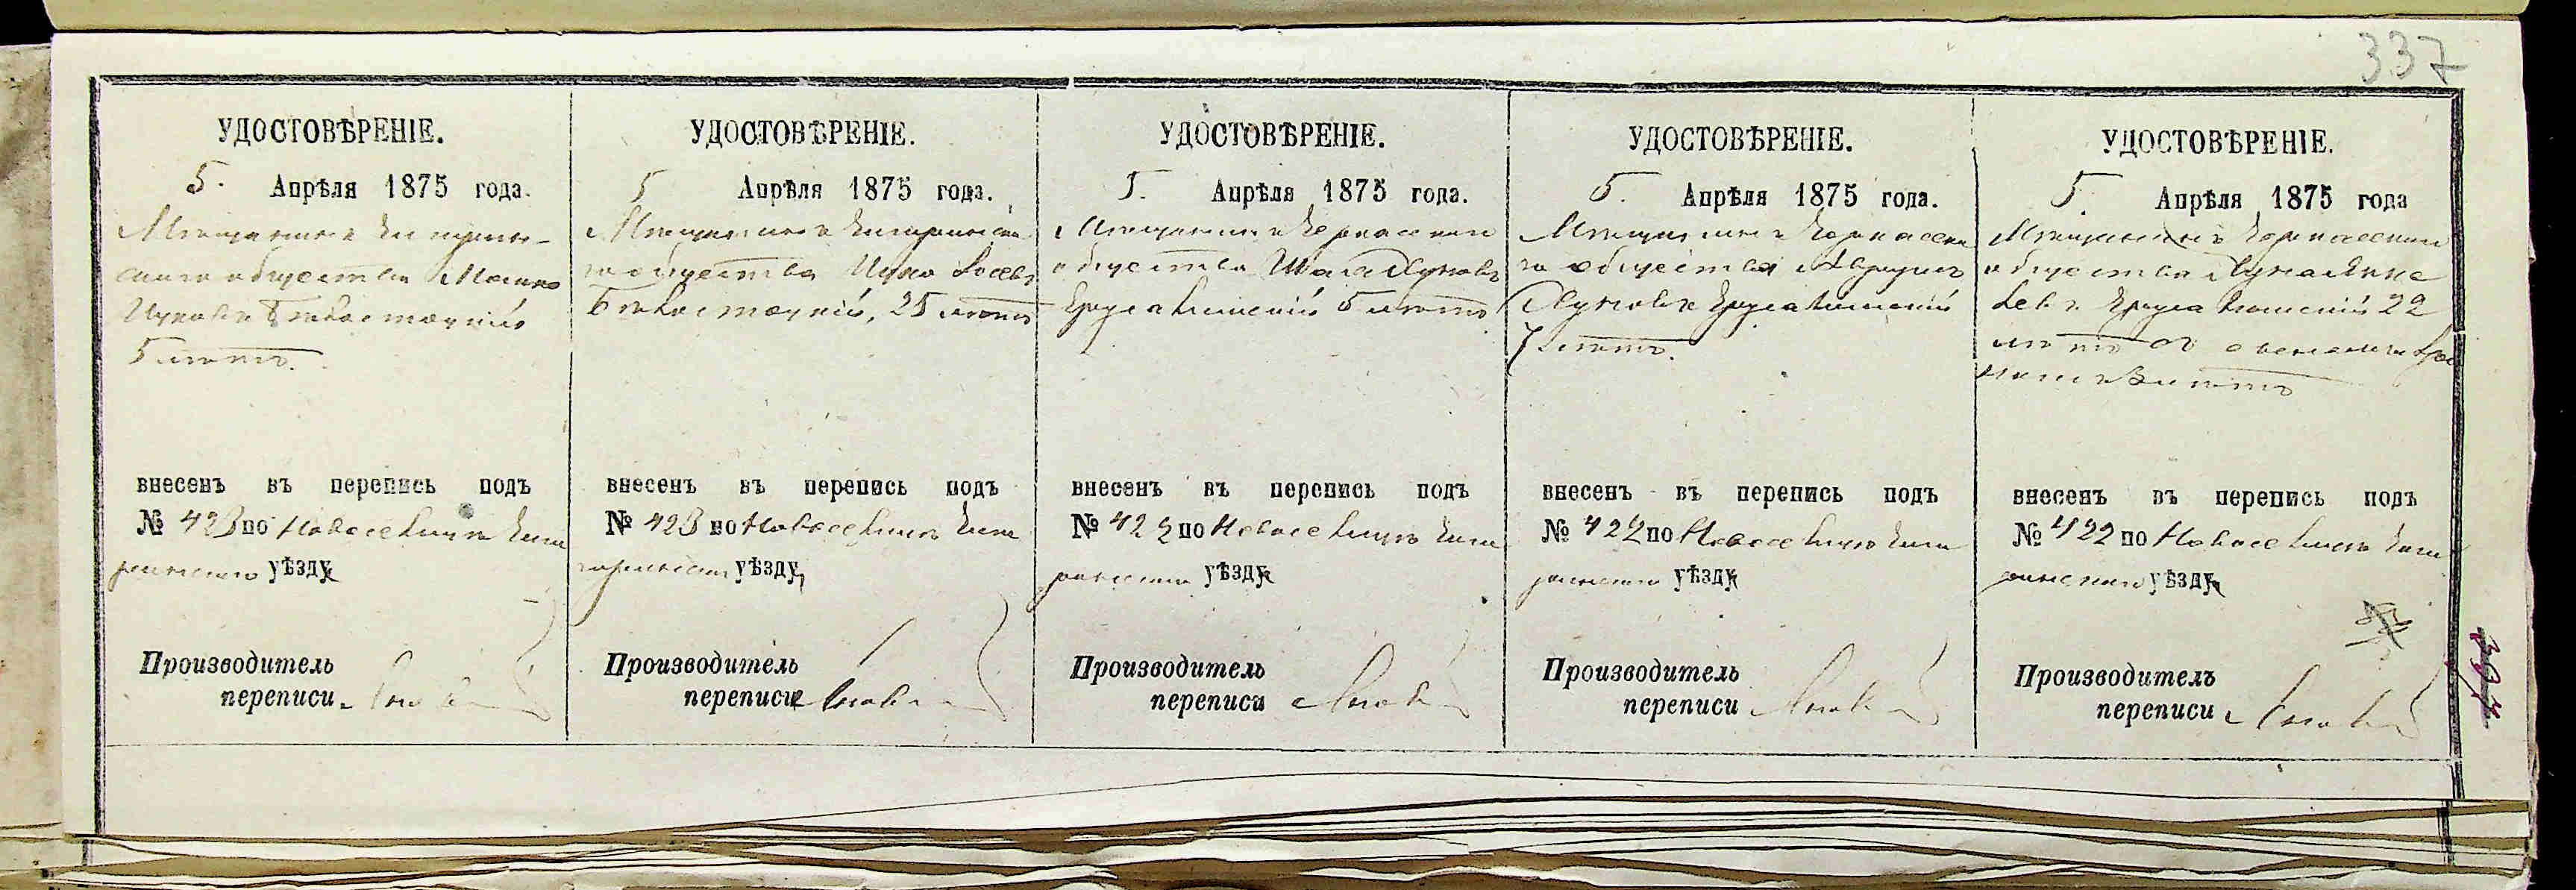 337
УДОСТОВѢРЕНІЕ.
5. Апрѣля 1875 года.
Мѣщанинъ Чигирин-
скаго общества Мошко
Ицковъ Бѣлостоцкій
5 лѣтъ.
внесенъ въ перепись подъ
№ 423 по Новоселицѣ Чиги
ринскаго уѣзду
Производитель
переписи
УДОСТОВѢРЕНІЕ.
5 Апрѣля 1875 года.
Мѣщанинъ Чигиринска
го общества Ицко Іосевъ
Бѣлостоцкій, 25 лѣтъ
внесенъ въ перепись подъ
№ 423 по Новоселицѣ Чиги
ринскаго уѣзду
Производитель
переписи
УДОСТОВѢРЕНІЕ.
5. Апрѣля 1875 года.
Мѣщанинъ Черкасскаго
общества Шая Духовъ
Ерусалимскій 5 лѣтъ
внесенъ въ перепись подъ
№ 422 по Новоселицѣ Чиги
ринскаго уѣзду
Производитель
переписи
УДОСТОВѢРЕНІЕ.
5. Апрѣля 1875 года.
Мѣщанинъ Черкасска
го общества
Духовъ Ерусалимскій
7 лѣтъ.
внесенъ въ перепись подъ
№ 422 по Новоселицѣ Чиги
ринскаго уѣзду
Производитель
переписи
УДОСТОВѢРЕНІЕ.
5. Апрѣля 1875 года
Мѣщанинъ Черкасскаго
общества
Ерусалимскій 22
лѣтъ
внесенъ въ перепись подъ
№ 422 по Новоселицѣ Чиги
ринскаго уѣзду
Производитель
переписи